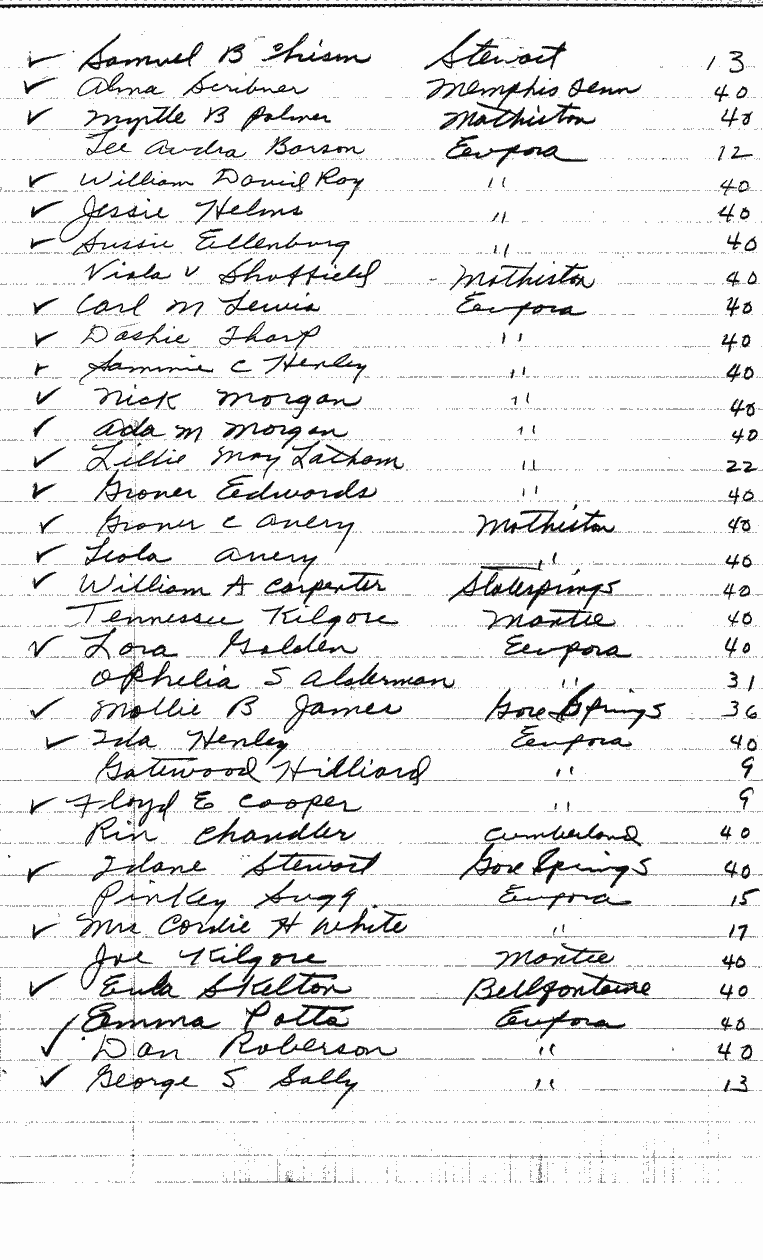 ✓ Samuel B Chism Stewart 13
✓ Alma Scribner Memphis Tenn 40
✓ Myrtle B Palmer Mathiston 40
Lee Audra Barson Eupora 12
✓ William David Ray " 40
✓ Jessie Helms " 40
✓ Sussie Ellenburg " 40
Viola V Shuffield Mathiston 40
✓ Carl M Lewis Eupora 40
✓ Dashie Tharp " 40
✓ Sammie C Henley " 40
✓ Nick Morgan " 40
✓ Ada M Morgan " 40
✓ Lillie May Latham " 22
✓ Grover Edwards " 40
✓ Grover C Avery Mathiston 40
✓ Leola Avery " 40
✓ William A Carpenter Slatesprings 40
Tennessee Kilgore Mantee 40
✓ Lora Golden Eupora 40
Ophelia S Alderman " 31
✓ Mollie B James Gore Springs 36
✓ Ida Henley Eupora 40
Gatewood Hilliard " 9
✓ Floyd E Cooper " 9
Rin Chandler Cumberland 40
✓ Idane Stewart Gore Springs 40
Pinkey Sugg. Eupora 15
✓ Mrs Cordie H White " 17
Joe Kilgore Mantee 40
✓ Eula Skelton Bellfontaine 40
✓ Emma Potts Eupora 40
✓ Dan Roberson " 40
✓ George S Sally " 13